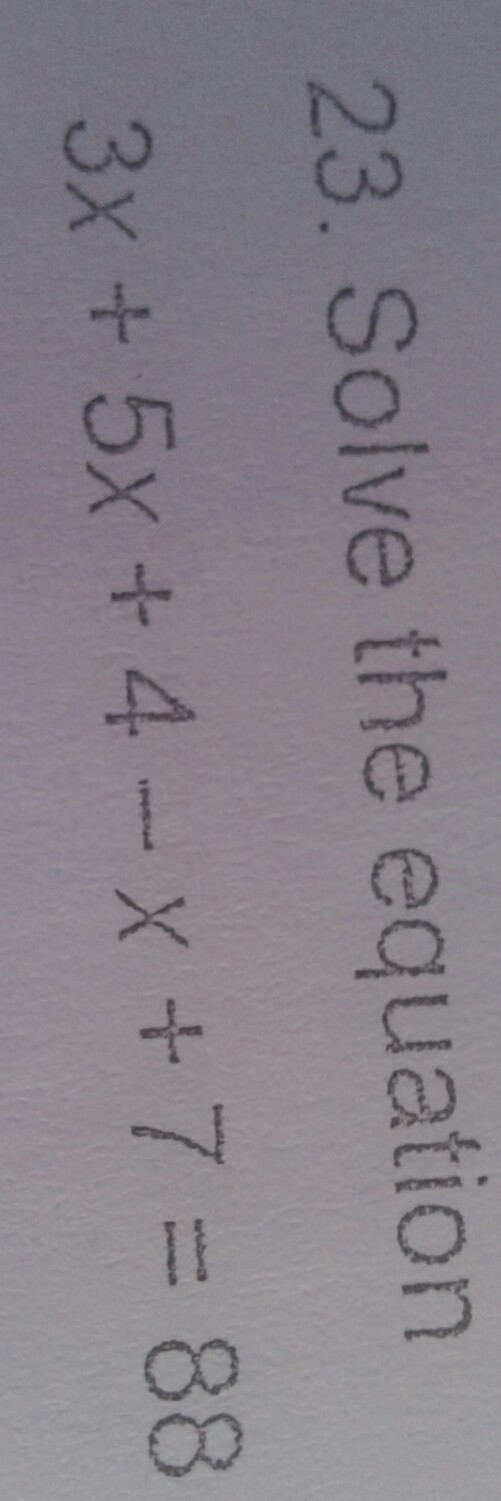 23. Solve the equation
3x + 5x + 4 – x + 7 = 88